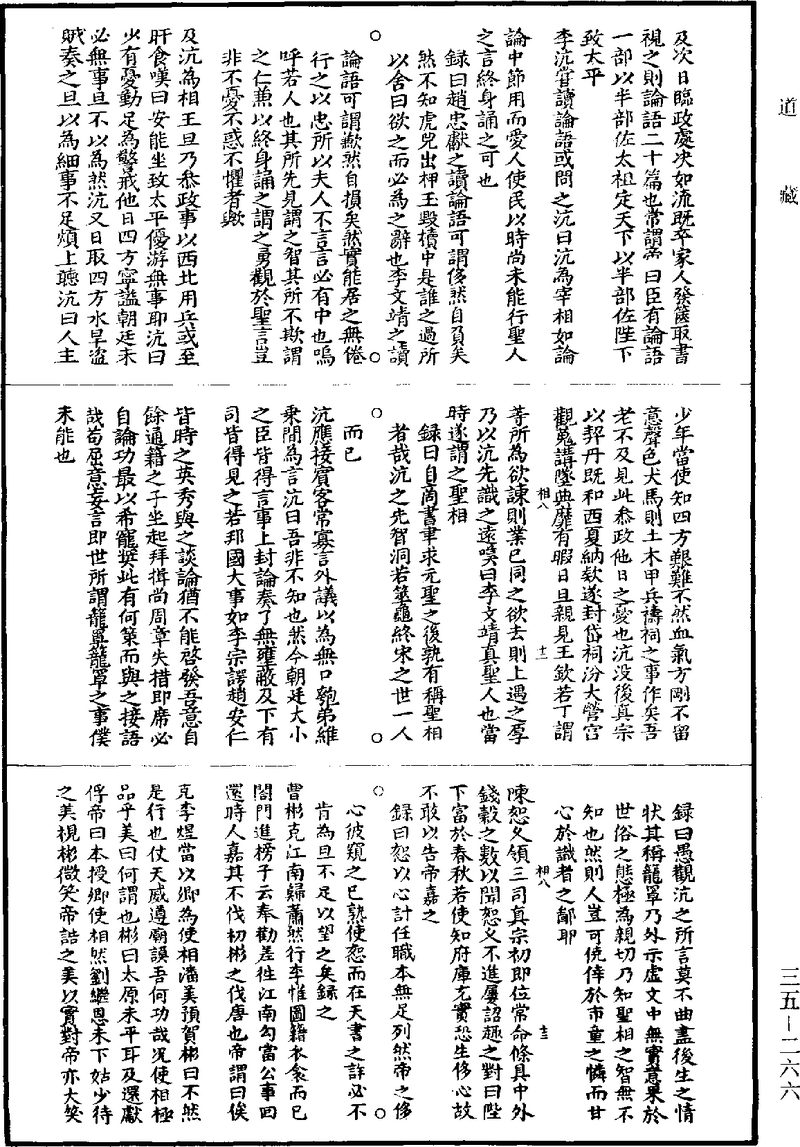 道藏
三五—二六六
及次日臨政處決如流既卒家人發篋取書
視之則論語二十篇也常謂帝曰臣有論語
一部以半部佐太祖定天下以半部佐陛下
致太平
李沆嘗讀論語或問之沆曰沆為宰相如論
論中節用而愛人使民以時尚未能行聖人
之言終身誦之可也
錄曰趙忠獻之讀論語可謂侈然自負矣
然不知虎兕出柙玉毀櫝中是誰之過所
以舍曰欲之而必為之辭也李文靖之讀
論語可謂歉然自損矣然實能居之無倦
行之以忠所以夫人不言言必有中也嗚
呼若人也其所先見謂之智其所不欺謂
之仁兼以終身誦之謂之勇觀於聖言豈
非不憂不惑不懼者歟
及沆為相王旦乃叅政事以西北用兵或至
旰食嘆曰安能坐致太平優游無事耶沆曰
少有憂動足為警戒他日四方寧謐朝廷未
必無事旦不以為然沆又日取四方水旱盜
賊奏之旦以為細事不足煩上聽沆曰人主
少年當使知四方艱難不然血氣方剛不留
意聲色犬馬則土木甲兵禱祠之事作矣吾
老不及見此叅政他日之憂也沆沒後真宗
以契丹既和西夏納欵遂封岱祠汾大營宮
觀蒐講墜典靡有暇日旦親見王欽若丁謂
相八
十二
等所為欲諫則業已同之欲去則上遇之厚
乃以沆先識之遠嘆曰李文靖真聖人也當
時遂謂之聖相
錄曰自商書聿求元聖之後孰有稱聖相
者哉沆之先智洞若蓍龜終宋之世一人
而已
沆應接賓客常寡言外議以為無口匏弟維
乘間為言沆曰吾非不知也然今朝廷大小
之臣皆得言事上封論奏了無壅蔽及下有
司皆得見之若邦國大事如李宗諤趙安仁
皆時之英秀與之談論猶不能啓發吾意自
餘通籍之子坐起拜揖尚周章失措即席必
自論功最以希寵奬此有何策而與之接語
哉苟屈意妄言即世所謂籠罩籠罩之事僕
未能也
錄曰愚觀沆之所言莫不曲盡後生之情
狀其稱籠罩乃外示虛文中無實意果於
世俗之態極為親切乃知聖相之智無不
知也然則人豈可僥倖於市童之憐而甘
心於識者之鄙耶
相八
十三
陳恕久領三司真宗初即位常命條具中外
錢穀之數以聞恕久不進屢詔趣之對曰陛
下富於春秋若使知府庫充實恐生侈心故
不敢以告帝嘉之
錄曰恕以心計任職本無足列然帝之侈
心彼窺之已熟使恕而在天書之詐必不
肯為旦不足以望之矣錄之
曹彬克江南歸蕭然行李惟圖籍衣衾而已
閤門進榜子云奉勅差徃江南勾當公事回
還時人嘉其不伐初彬之伐唐也帝謂曰俟
克李煜當以卿為使相潘美預賀彬曰不然
是行也仗天威遵廟謨吾何功哉况使相極
品乎美曰何謂也彬曰太原未平耳及還獻
俘帝曰本授卿使相然劉繼恩未下姑少待
之美視彬微笑帝詰之美以實對帝亦大笑